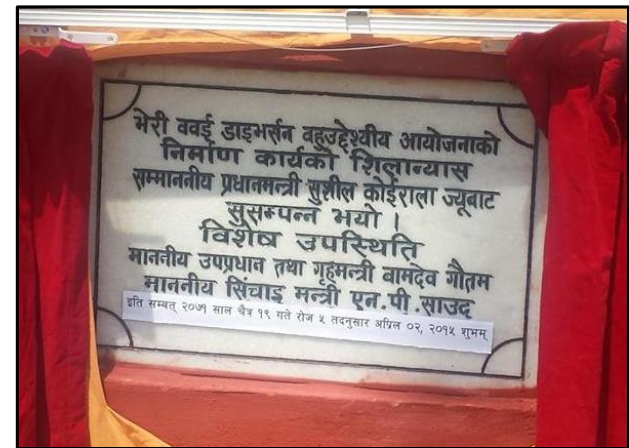 भेरी ववई डाइभर्सन वहुउद्देश्यीय आयोजनाको
निर्माण कार्यको शिलान्यास
सम्माननीय प्रधानमन्त्री सुशील कोईराला ज्यूबाट
सुसम्पन्न भयो ।
विशेष उपस्थिति
माननीय उपप्रधान तथा गृहमन्त्री बामदेव गौतम
माननीय सिंचाइ मन्त्री एन.पी.साउद
इति सम्बत् २०७१ साल चैत्र १९ गते रोज ५ तदनुसार अप्रिल ०२, २०१५ शुभम्